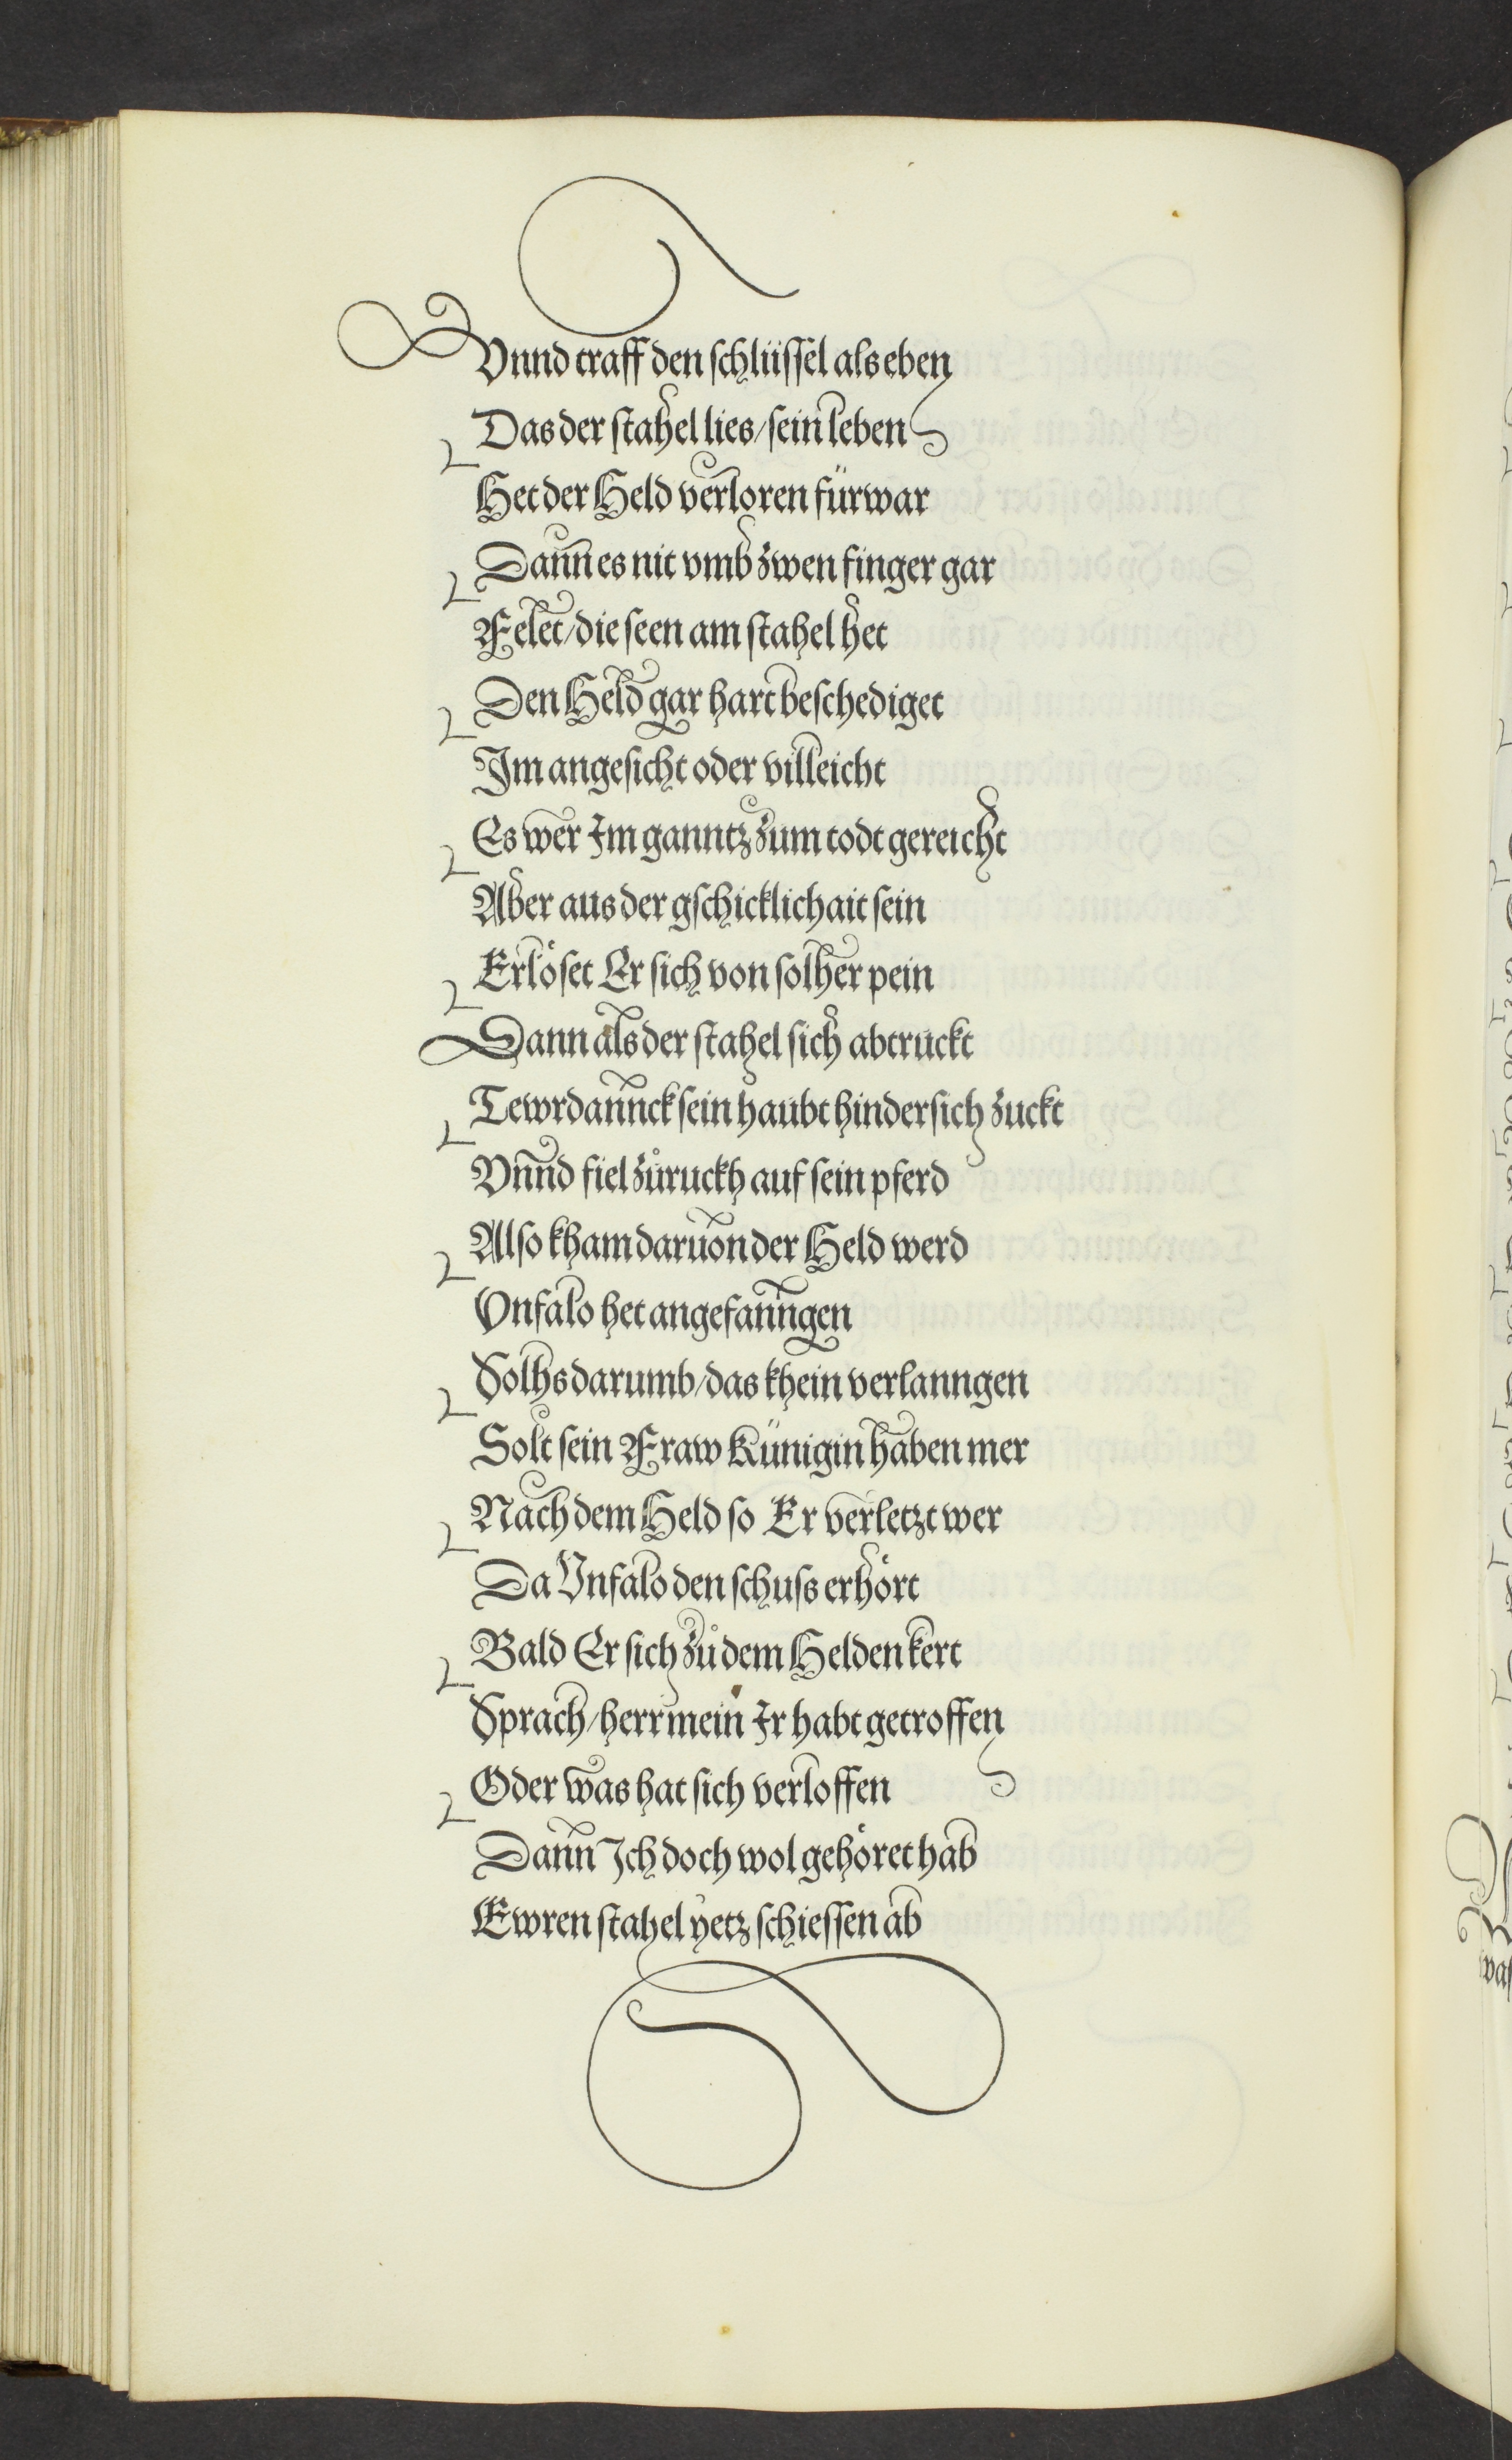 Vnnd traff den schlüssel als eben
Das der stahel lies/sein leben
Het der Held verloren fürwar
Dann es nit vmb zwen finger gar
Felet/die seen am stahel het
Den Held gar hart beschediget
Im angesicht oder villeicht
Es wer Im ganntz zum todt gereicht
Aber aus der gschicklichait sein
Erlöset Er sich von solher pein
Dann als der stahel sich abtruckt
Tewrdannck sein haubt hindersich zuckt
Vnnd fiel zůruckh auf sein pferd
Also kham daruon der Held werd
Vnfalo het angefanngen
Solhs darumb/das khein verlanngen
Solt sein Fraw Künigin haben mer
Nach dem Held so Er verletzt wer
Da Vnfalo den schuss erhört
Bald Er sich zů dem Helden kert
Sprach/herr mein Ir habt getroffen
Oder was hat sich verloffen
Dann Ich doch wol gehöret hab
Ewren stahel yetz schiessen ab